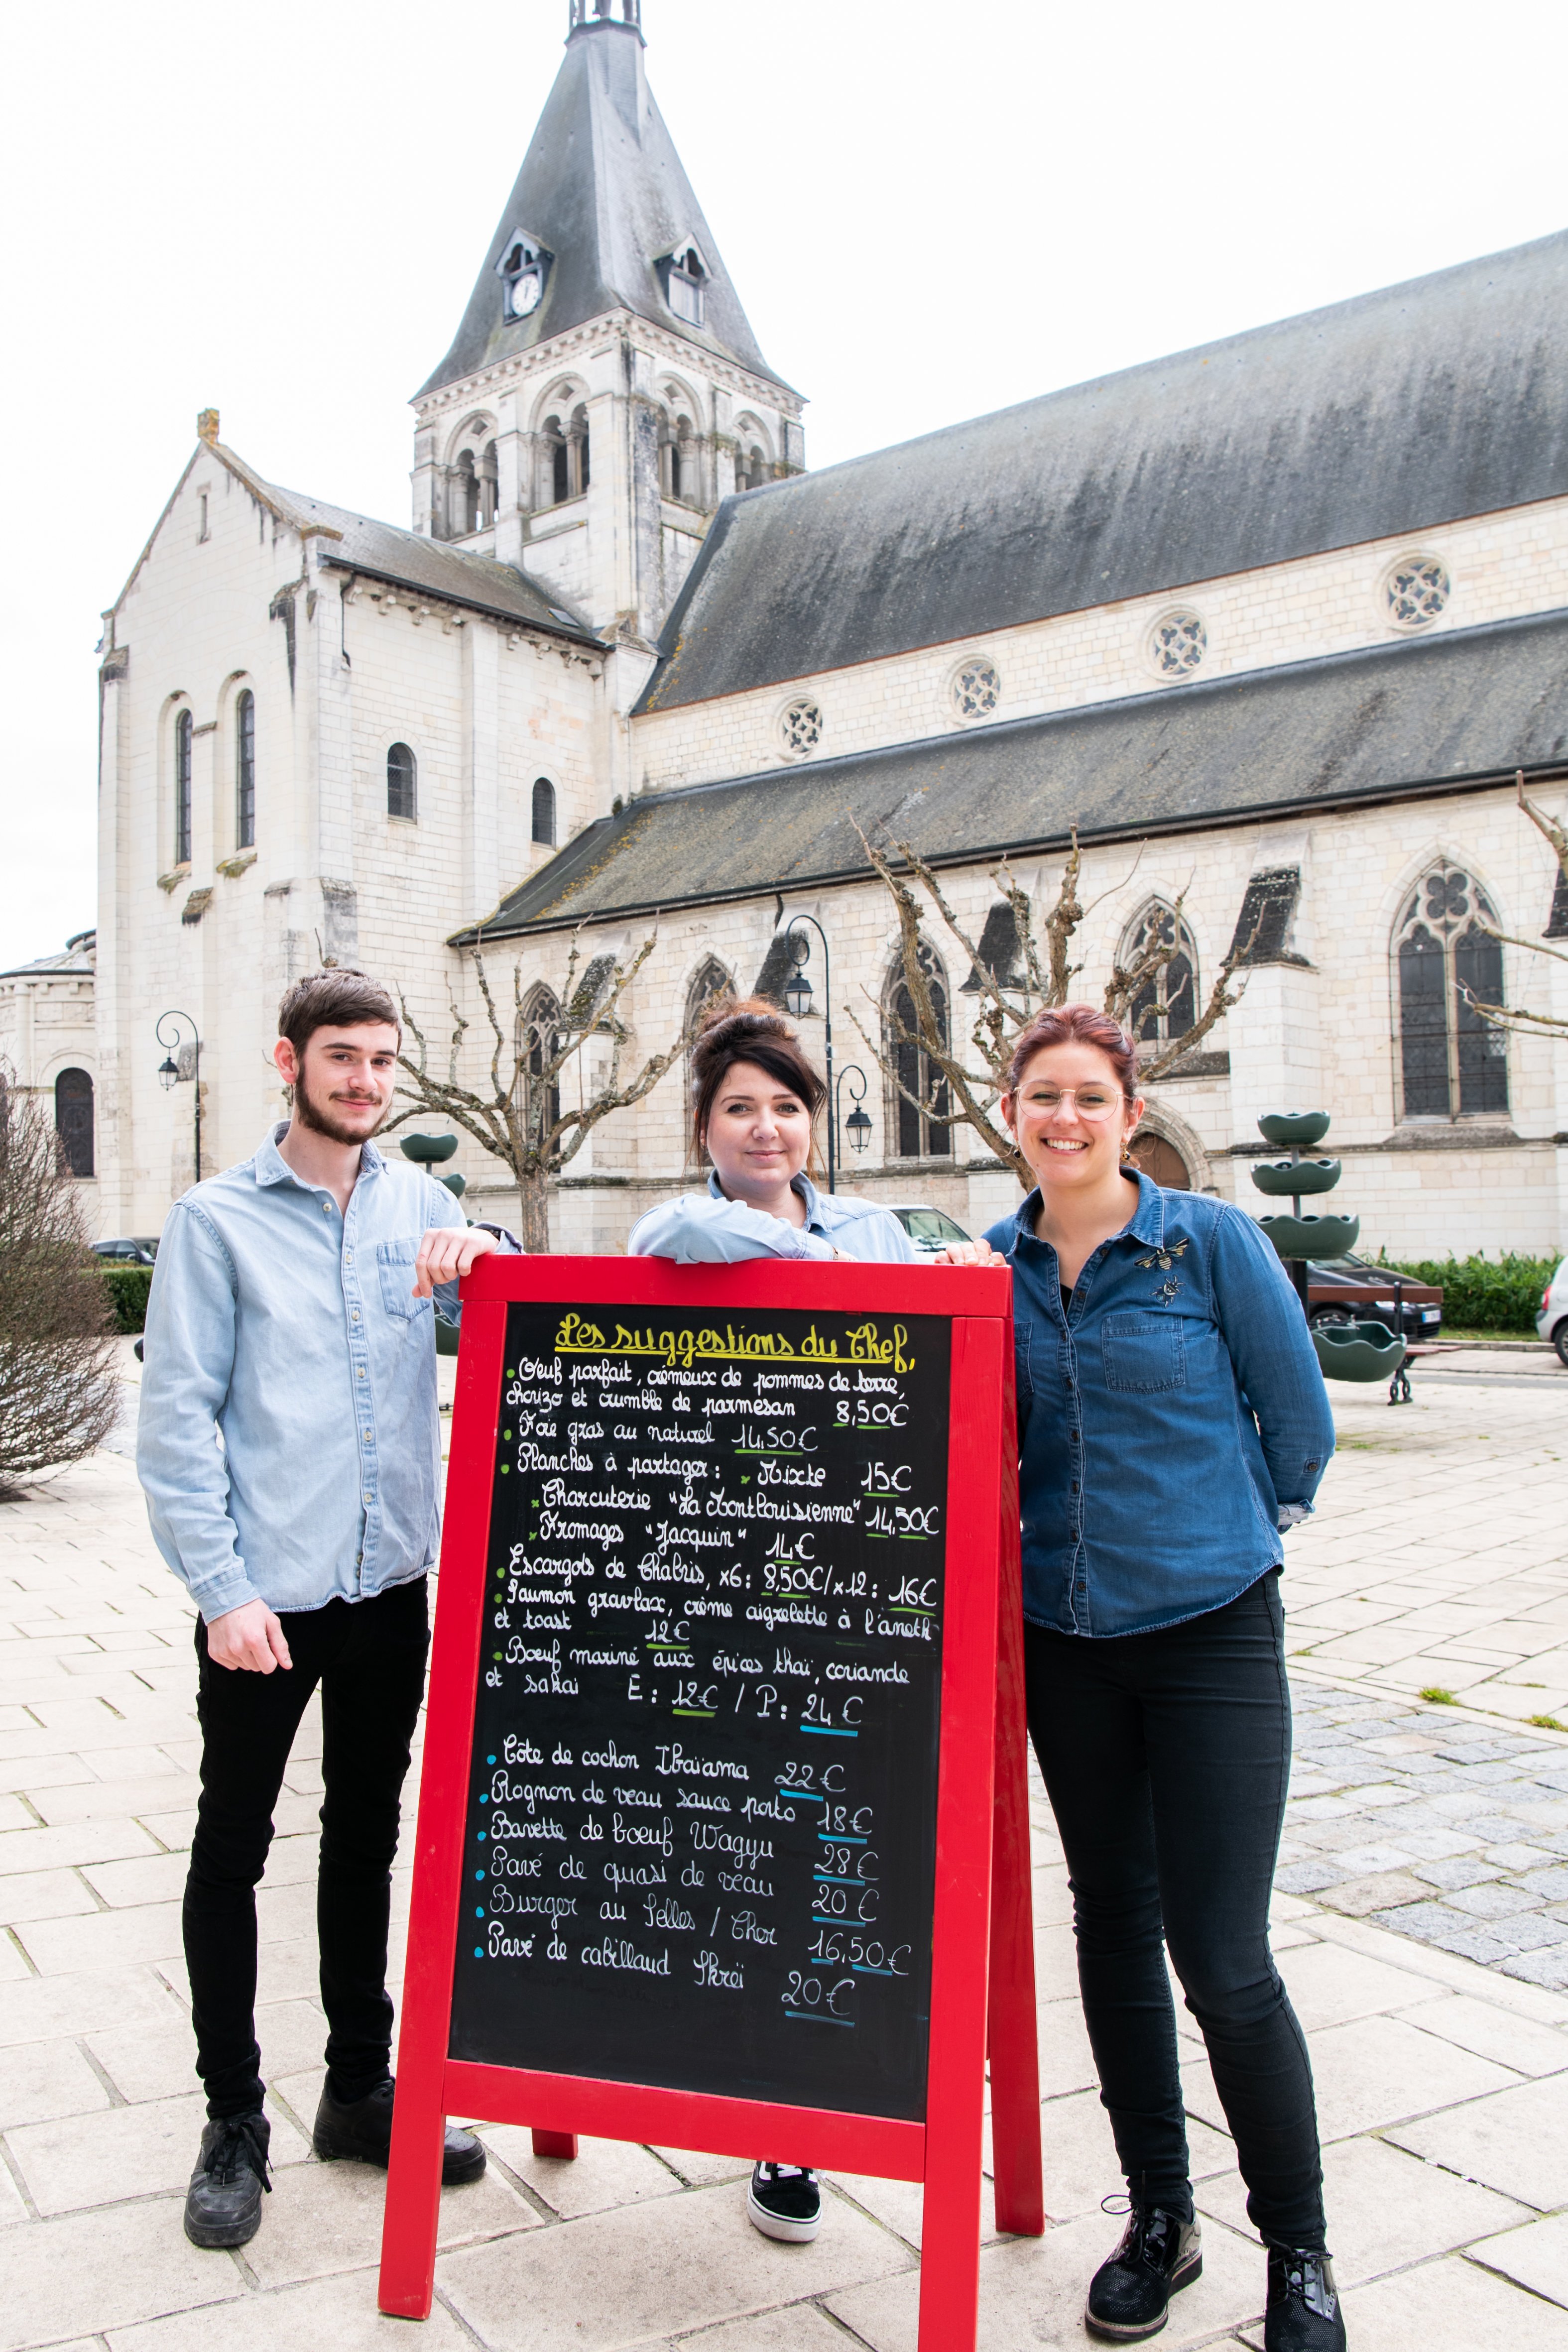 Les suggestions du Chef,
• Oeuf parfait, crémeux de pommes de terre,
chorizo et crumble de parmesan 8,50€
• Foie gras au naturel 14,50€
• Planches à partager: × Mixte 15€
× Charcuterie "La Montlouisienne" 14,50€
× Fromages "Jacquin" 14€
• Escargots de Chabris, x6: 8,50€/x12: 16€
• Saumon gravlax, crème aigrelette à l'aneth
et toast 12€
• Bœuf mariné aux épices thaï, coriande
et sakai E: 12€ / P: 24€
• Côte de cochon Ibaïama 22€
• Rognon de veau sauce porto 18€
• Bavette de bœuf Wagyu 28€
• Pavé de quasi de veau 20€
• Burger au Selles / Cher 16,50€
• Pavé de cabillaud Skreï 20€